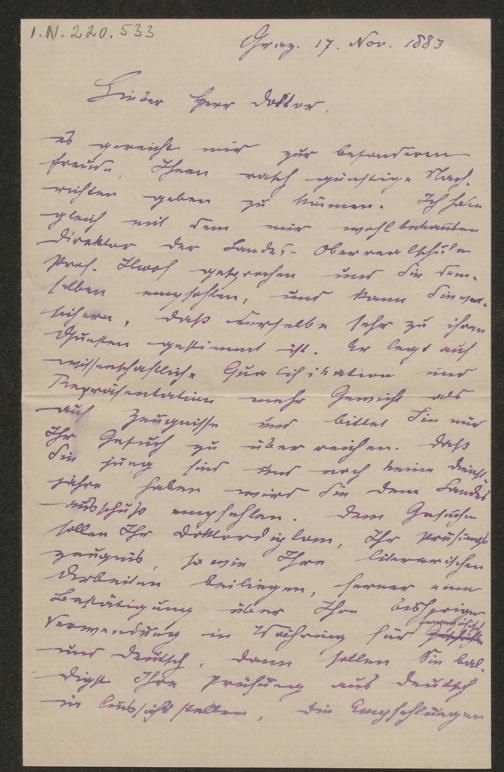 I.N. 220.533
Graz. 17. Nov. 1883
Lieber Herr Doktor,
es gereicht mir zur besonderen
Freude, Ihnen rasch günstige Nach-
richten geben zu können. Ich habe
gleich mit dem mir wohlbekannten
Direktor der Landes-Oberrealschule
Prof. Ilwof gesprochen und Sie dem-
selben empfohlen, und kann Sie ver-
sichern, daß derselbe sehr zu ihren
Gunsten gestimmt ist. Er legt auf
wissenschaftliche Qualifikation und
Repräsentation mehr Gewicht als
auf Zeugnisse und bittet Sie nur
Ihr Gesuch zu überreichen. Daß
Sie jung sind und noch keine Dienst-
jahre haben wird Sie dem Landes
ausschuß empfehlen. Dem Gesuche
sollen Ihr Doktordiplom, Ihr Prüfungs
zeugnis, sowie Ihre literarischen
Arbeiten beiliegen, ferner eine
Bestätigung über Ihre bisherige
Verwendung in Währing für
und Deutsch, dann sollen Sie bal-
digst Ihre Prüfung aus Deutsch
in Aussicht stellen, die Empfehlungen